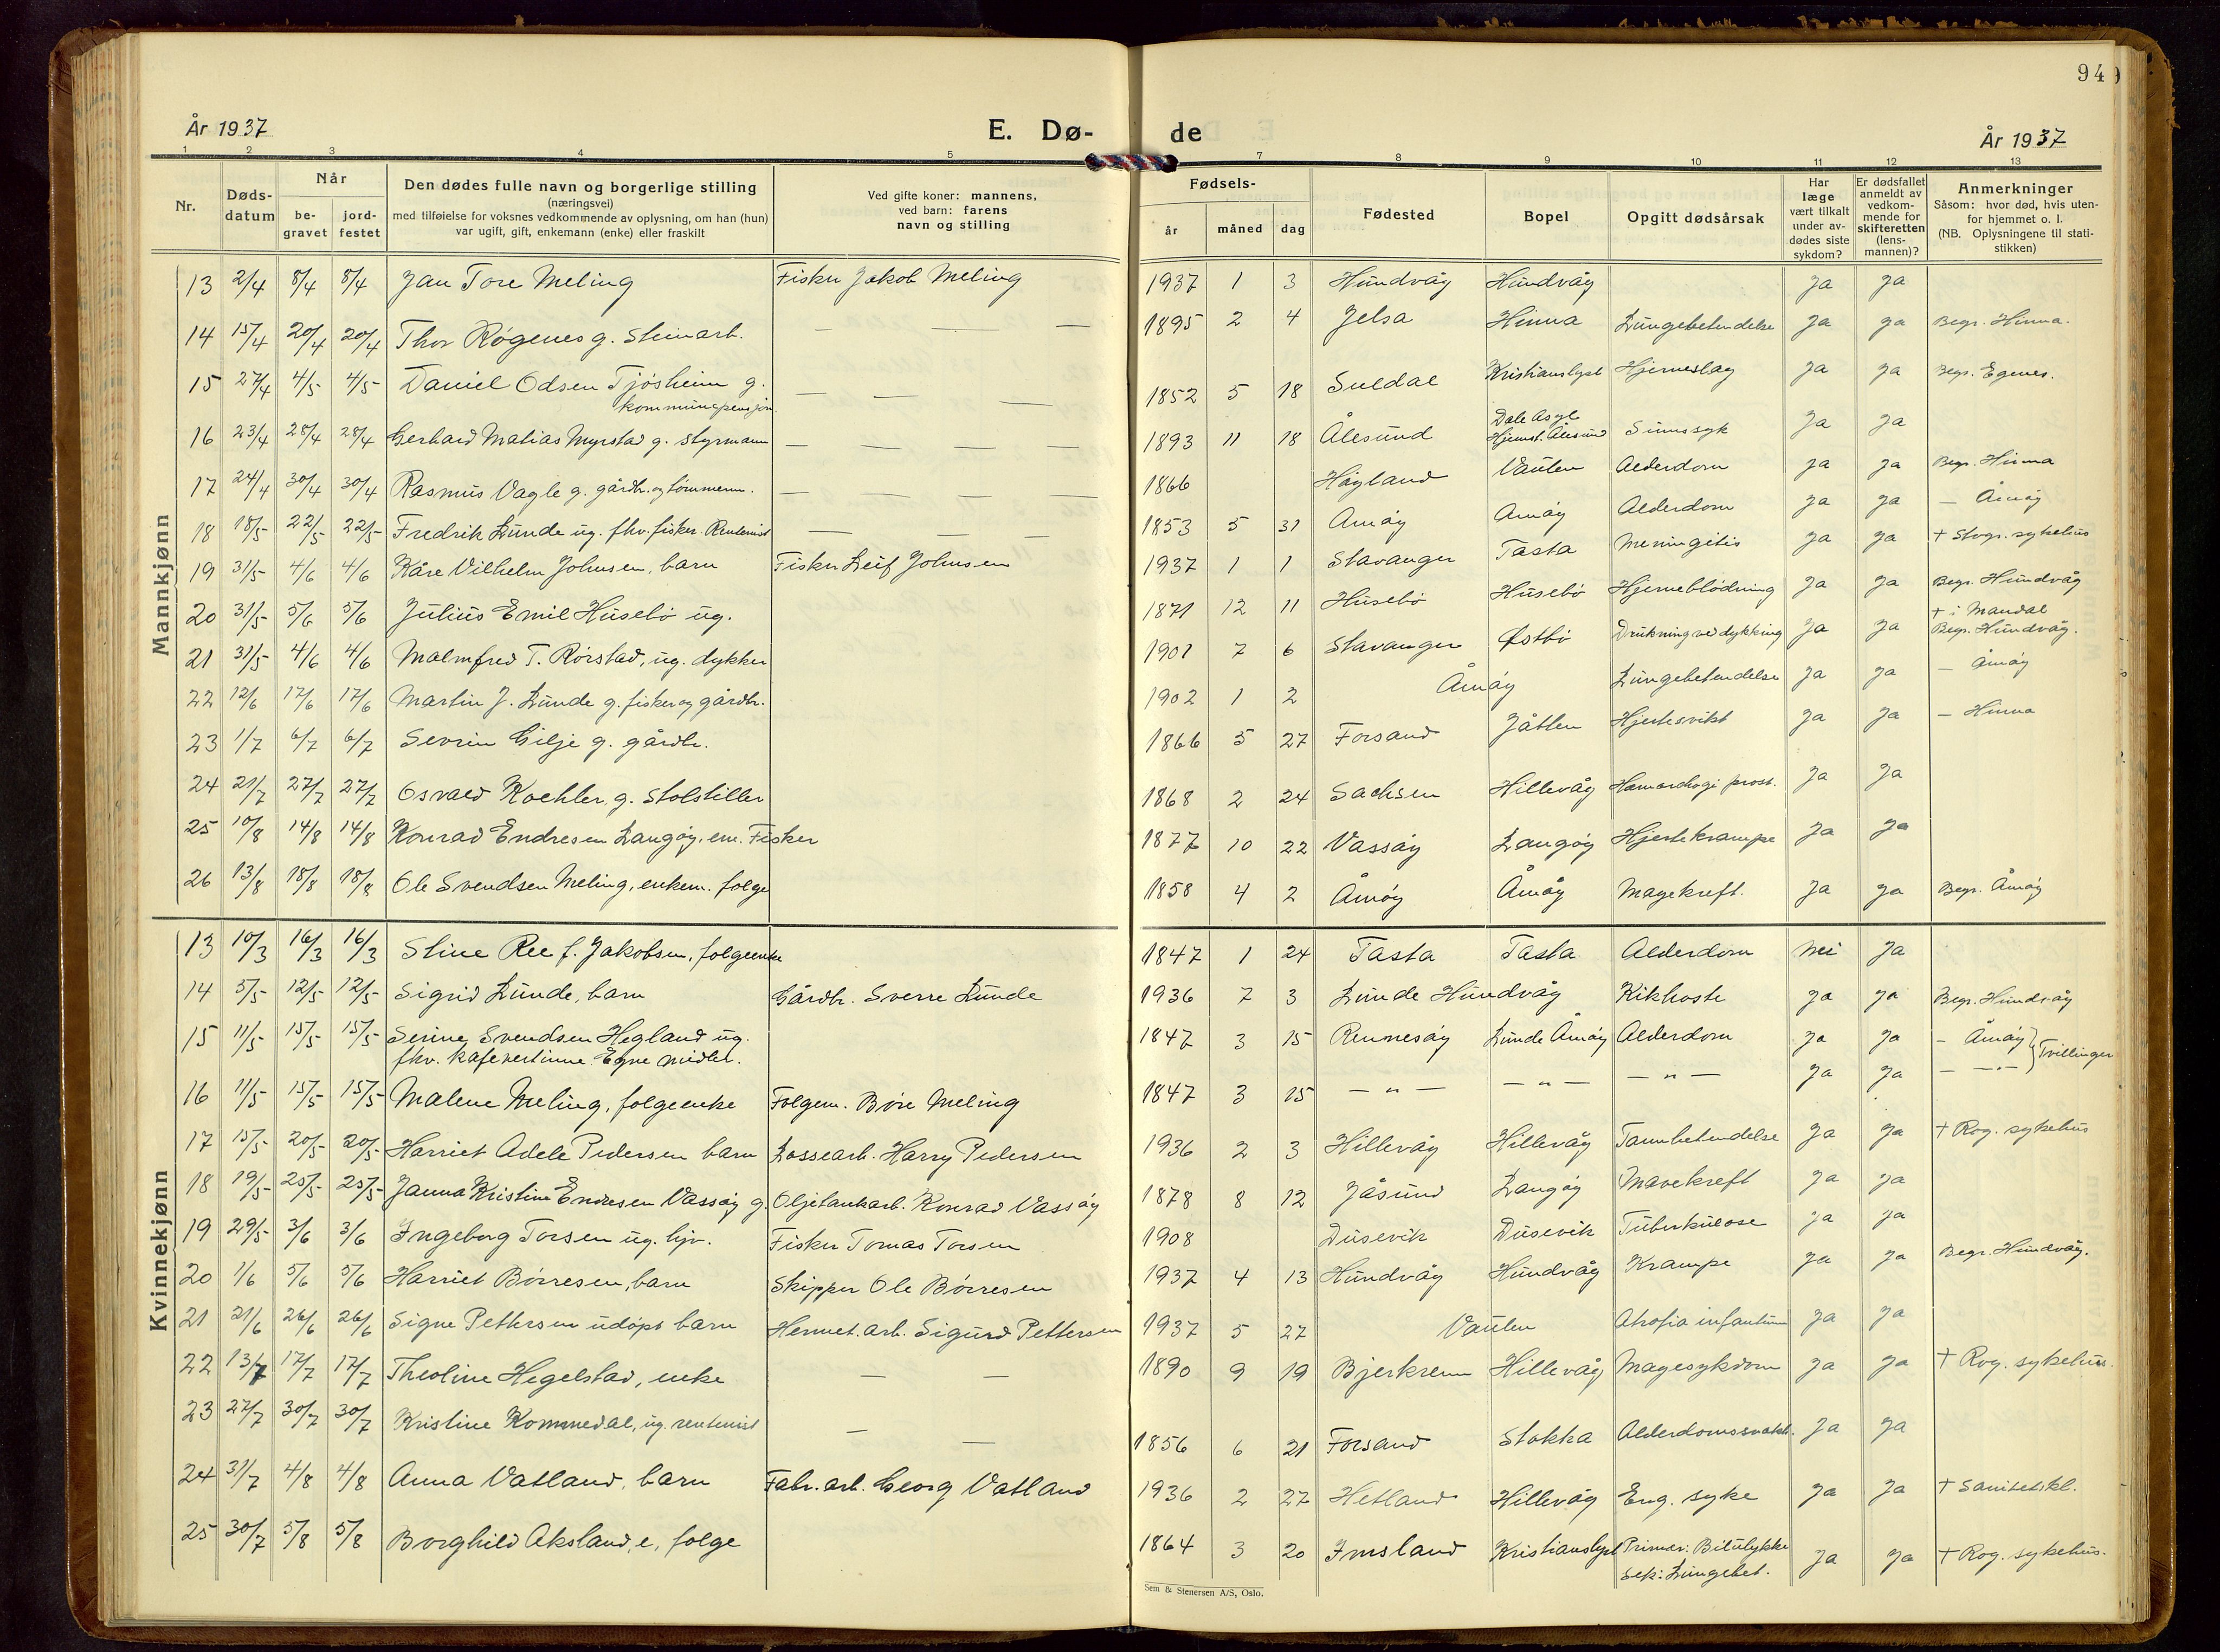 94
År 1937 E. Dø- de År 1937
1 2 3 4 5 7 8 9 10 11 12 13
Nr. Døds-datum Når be-gravet jord-festet Den dødes fulle navn og borgerlige stilling (næringsvei) med tilføielse for voksnes vedkommende av oplysning, om han (hun) var ugift, gift, enkemann (enke) eller fraskilt Ved gifte koner: mannens, ved barn: farens navn og stilling Fødsels- år måned dag Fødested Bopel Opgitt dødsårsak Har læge vært tilkalt under av-dødes siste sykdom? Er dødsfallet anmeldt av vedkom-mende for skifteretten (lens-mannen)? Anmerkninger Såsom: hvor død, hvis uten-for hjemmet o. l. (NB. Oplysningene til stati-stikken)
Mannkjønn
13 2/4 8/4 8/4 Jan Tore Meling Fisker Jakob Meling 1937 1 3 Hundvåg Hundvåg Ja Ja
14 15/4 20/4 20/4 Thor Røgenes g. Steinarb. — — — 1895 2 4 Jelsa Hinna Lungebetendelse Ja Ja Begr. Hinna.
15 27/4 4/5 4/5 Daniel Odsen Tjøsheim g. kommunepensjon. — — — 1852 5 18 Suldal Kristianslyst Hjerneslag Ja Ja Begr. Egenes.
16 23/4 28/4 28/4 Gerhard Matias Myrstad g. styrmann — — — 1893 11 18 Ålesund Dale Asyl Hjemst. Ålesund Sinnssyk Ja Ja
17 24/4 30/4 30/4 Rasmus Vagle g. gårdbr. og tømmerm. — — — — 1866 Høgland Vaulen Alderdom Ja Ja Begr. Hinna
18 18/5 22/5 22/5 Fredrik Lunde ug. fhv. fisker. Rentenist — — — 1853 5 31 Åmøy Åmøy Alderdom Ja Ja — Åmøy
19 31/5 4/6 4/6 Kåre Vilhelm Johnsen, barn Fisker Leif Johnsen 1937 1 1 Stavanger Tasta Meningitis Ja Ja + Stvgr. sykehus
20 31/5 5/6 5/6 Julius Emil Husebø ug. 1871 12 11 Husebø Husebø Hjerneblødning Ja Ja Begr. Hundvåg
21 31/5 4/6 4/6 Malmfred T. Rørstad, ug. dykker 1901 7 6 Stavanger Østbø Drukning ved dykking Ja Ja + i Mandal Begr. Hundvåg.
22 12/6 17/6 17/6 Martin J. Lunde g. fisker og gårdbr. 1902 1 2 Åmøy Lungebetendelse Ja Ja — Åmøy
23 1/7 6/7 6/7 Sevrin Gilje g. gårdbr. 1866 5 27 Forsand Jåtten Hjertesvikt Ja Ja — Hinna
24 21/7 27/7 27/7 Osvald Koehler, g. Stolstiller 1868 2 24 Sachsen Hillevåg Hæmorrhagi prost. Ja Ja
25 10/8 14/8 14/8 Konrad Endresen Langøy, em. Fisker 1877 10 22 Vassøy Langøy Hjertekrampe Ja Ja
26 13/8 18/8 18/8 Ole Svendsen Meling, enkem. folge 1858 4 2 Åmøy Åmøy Magekreft. Ja Ja Begr. Åmøy
Kvinnekjønn
13 10/3 16/3 16/3 Stine Ree f. Jakobsen, folgeenke 1847 1 24 Tasta Tasta Alderdom Nei Ja
14 5/5 12/5 12/5 Sigrid Lunde, barn Gårdbr. Sverre Lunde 1936 7 3 Lunde Hundvåg Kikhoste Ja Ja Begr. Hundvåg
15 11/5 15/5 15/5 Serine Svendsen Hegland ug. fhv. kafevertinne. Egne midler. 1847 3 15 Rennesøy Lunde Åmøy Alderdom Ja Ja — Åmøy } Tvillinger
16 11/5 15/5 15/5 Malene Meling, folgeenke Folgem. Børe Meling 1847 3 15 — „ — — „ — — „ — Ja Ja — — „ —
17 15/5 20/5 20/5 Harriet Adele Pedersen barn Lossearb. Harry Pedersen 1936 2 3 Hillevåg Hillevåg Tarmbetendelse Ja Ja + Rog. sykehus
18 19/5 25/5 25/5 Janna Kristine Endresen Vassøy g. Oljetankarb. Konrad Vassøy 1878 8 12 Jåsund Langøy Mavekreft Ja Ja
19 29/5 3/6 3/6 Ingeborg Torsen ug. hjv. Fisker Tomas Torsen 1908 Dusevik Dusevik Tuberkulose Ja Ja
20 1/6 5/6 5/6 Harriet Børresen, barn Skipper Ole Børresen 1937 4 13 Hundvåg Hundvåg Krampe Ja Ja Begr. Hundvåg.
21 21/6 26/6 26/6 Signe Pettersen udøpt barn Hermet. arb. Sigurd Pettersen 1937 5 27 Vaulen Atrofia infantum Ja Ja
22 13/7 17/7 17/7 Theoline Hegelstad, enke — — 1890 9 19 Bjerkrem Hillevåg Magesykdom Ja Ja + Rog. sykehus.
23 27/7 30/7 30/7 Kristine Kommedal, ug. rentenist — — 1856 6 21 Forsand Stokka Alderdomssvakh. Ja Ja
24 31/7 4/8 4/8 Anna Vatland, barn Fabr. arb. Georg Vatland 1936 2 27 Hetland Hillevåg Eng. syke Ja Ja + Sanitetskl.
25 30/7 5/8 5/8 Borghild Aksland, e, folge 1864 3 20 Imsland Kristianslyst Primær: Bilulykke Sek: Lungebet. Ja Ja + Rog. sykehus.
Sem & Stenersen A/S, Oslo.